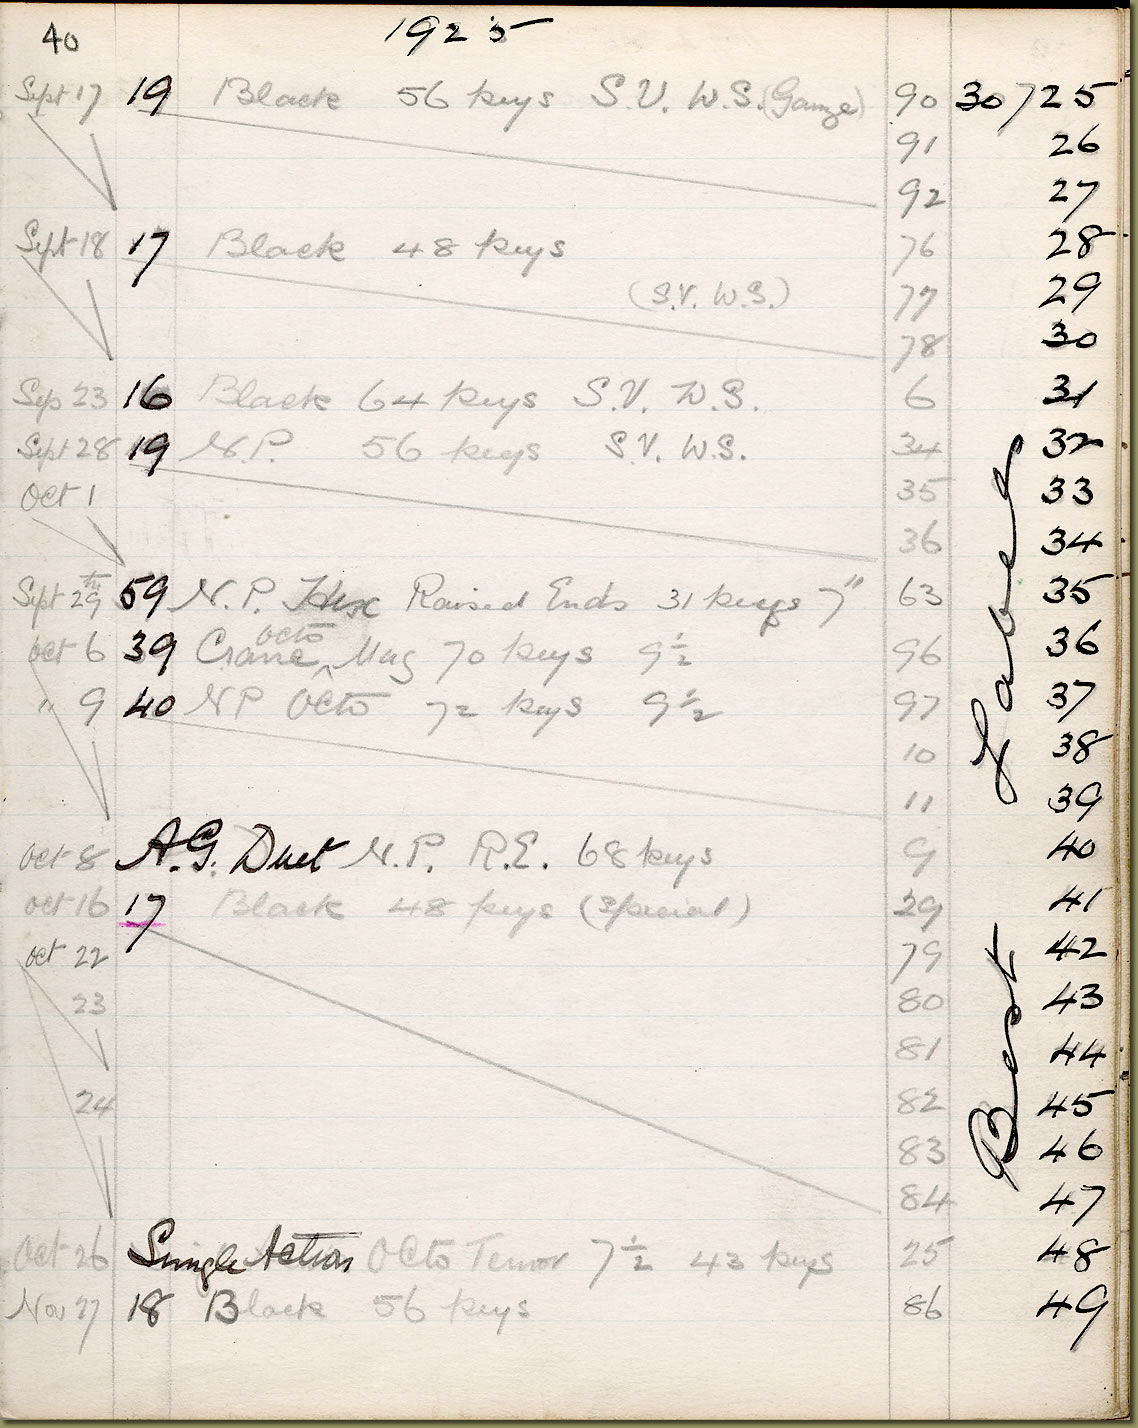 40 1925
Sept 17 19 Black 56 keys S.V. W.S. (Gauze) 90 30725
91 26
92 27
Sept 18 17 Black 48 keys 76 28
(S.V. W.S.) 77 29
78 30
Sep 23 16 Black 64 keys S.V. W.S. 6 31
Sept 28 19 N.P. 56 keys S.V. W.S. 34 32
Oct 1 35 33
36 34
Sept 29th 59 N.P. Hex Raised Ends 31 keys 7" 63 35
Oct 6 39 Crane octo Mag 70 keys 9½ 96 36
" 9 40 NP Octo 72 keys 9½ 97 37
10 38
11 39
Oct 8 A.G. Duet N.P. R.E. 68 keys 9 40
Oct 16 17 Black 48 keys (Special) 29 41
Oct 22 79 42
23 80 43
81 44
24 82 45
83 46
84 47
Oct 26 Single Action Octo Tenor 7½ 43 keys 25 48
Nov 27 18 Black 56 keys 86 49
Best